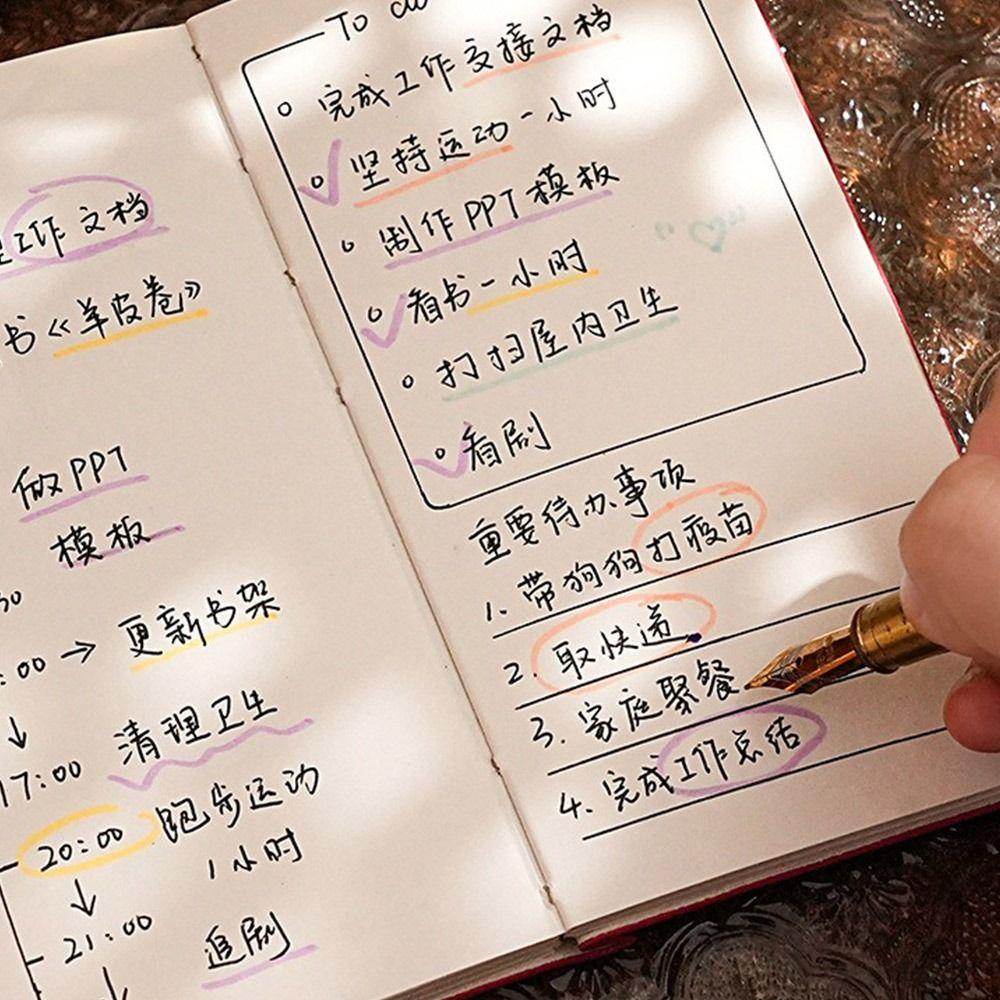 工作文档
书《羊皮卷》
做PPT
模板
:00 → 更新书架
17:00 清理卫生
20:00 跑步运动
1小时
21:00
追剧
To do
完成工作交接文档
坚持运动一小时
制作PPT模板
看书一小时
打扫屋内卫生
看剧
重要待办事项
1. 带狗狗打疫苗
2. 取快递
3. 家庭聚餐
4. 完成工作总结